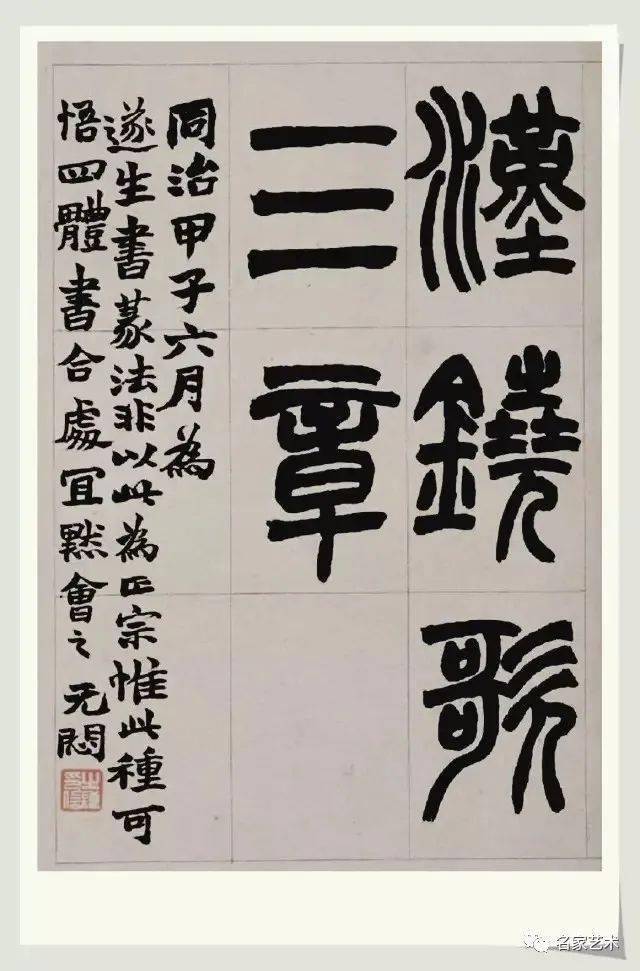 漢鐃歌
三章
同治甲子六月為
遂生書篆法非以此為正宗惟此種可
悟四體書合處宜默會之 无悶
名家艺术